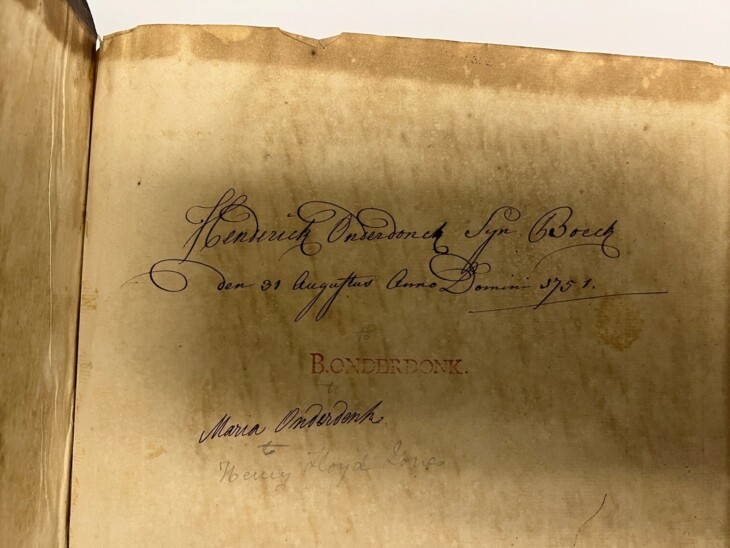 Henderick Onderdonck Syn Boeck
den 31 Augustus Anno Domini 1751.
to
B. ONDERDONK.
to
Maria Onderdonk
to
Henry Floyd Jones